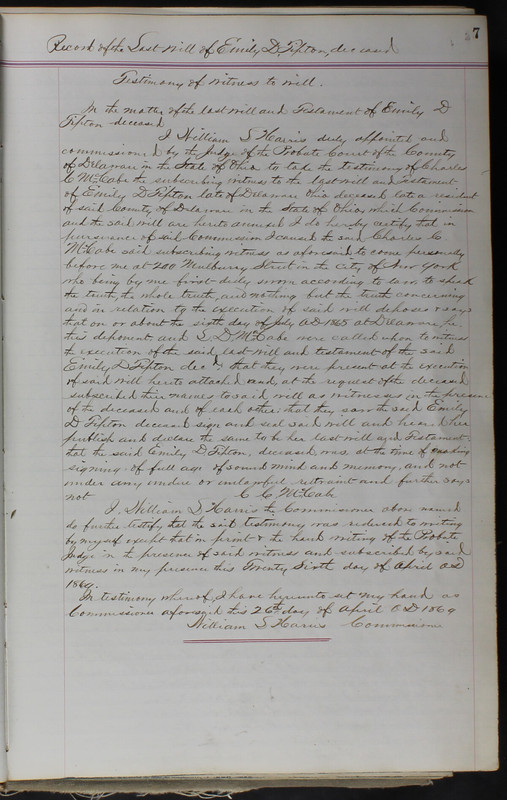 7
Record of the Last Will of Emily D. Tipton, deceased
Testimony of witness to will.
In the matter of the last will and Testament of Emily D
Tipton deceased
I William S Harris duly appointed and
commissioned by the Judge of the Probate Court of the County
of Delaware in the State of Ohio to take the testimony of Charles
C McCabe the subscribing witness to the last will and testament
of Emily D Tipton late of Delaware Ohio deceased late a resident
of said County of Delaware in the State of Ohio which Commission
and the said will are hereto annexed I do hereby certify that in
pursuance of said Commission I caused the said Charles C
McCabe said subscribing witness as aforesaid to come personally
before me at 200 Mulburry Street in the City of New York
who being by me first duly sworn according to law, to speak
the truth, the whole truth, and nothing but the truth concerning
and in relation to the execution of said will deposes & says
that on or about the sixth day of July A.D 1865 at Delaware, he
this deponent and L D McCabe were called upon to witness
the execution of the said last will and testament of the said
Emily D Tipton dec'd, that they were present at the execution
of said will hereto attached and, at the request of the deceased
subscribed their names to said will as witnesses in the presence
of the deceased and of each other that they saw the said Emily
D Tipton deceased sign and seal said will and heard her
publish and declare the same to be her last will and Testament
that the said Emily D Tipton, deceased, was, at the time of making
signing of full age of sound mind and memory, and not
under any undue or unlawful restraint and further says
not C C McCabe
I William S Harris the Commissioner above named
do further testify that the said testimony was reduced to writing
by myself except that in print & the hand writing of the Probate
Judge in the presence of said witness and subscribed by said
witness in my presence this Twenty Sixth day of April AD
1869.
In testimony whereof, I have hereunto set my hand as
Commissioner aforesaid this 26th day of April A D 1869
William S Harris Commissioner